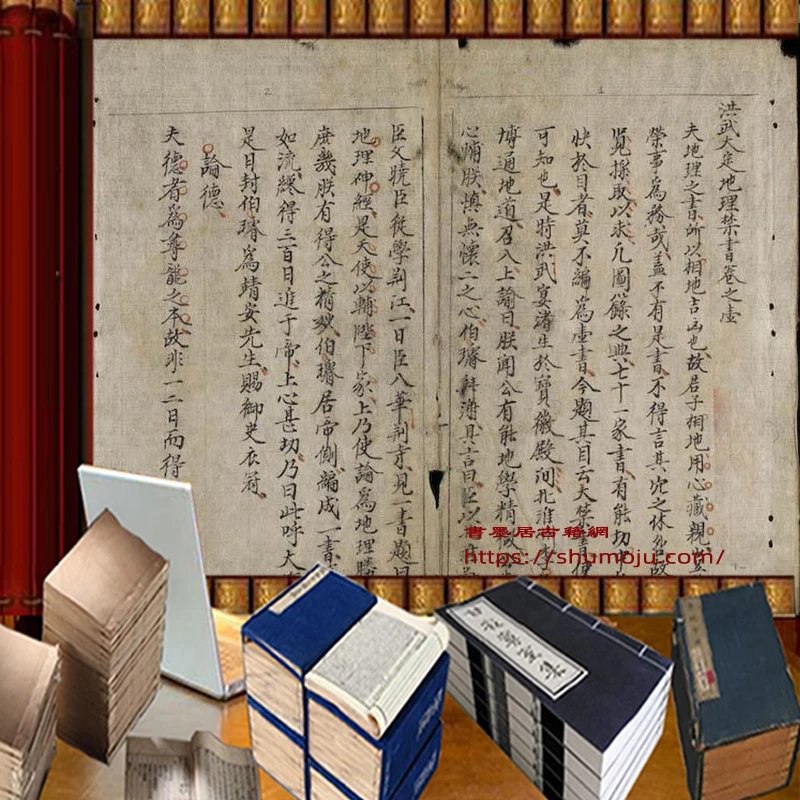 洪武大定地理禁書卷之壹
夫地理之書所以相地吉凶也故君子相地用心藏親
榮事為務哉蓋不有是書不得言其穴之休咎故
覓採取以求凡圖籙之典七十一家書有能切
快於目者莫不編為壹書今題其目云大禁書
可知也是時洪武宴渚生於寶徽殿間
博通地道召入上諭曰朕聞公有能地學精微
心輔朕慎無懷二之心伯璿拜
臣父曉臣徒學荆江一日臣入華荆寺見一書題曰
地理神經是天使以輔陛下家上乃使論為地理
庶幾朕有得公之精妙伯璿居帝側編成一書
如流纔得三百日進于帝上心甚切乃曰此呼大
是日封伯璿為靖安先生賜御史衣冠
論德
夫德者為尊龍之本故非一二日而得
1
2
書墨居古籍網
https://shumoju.com/